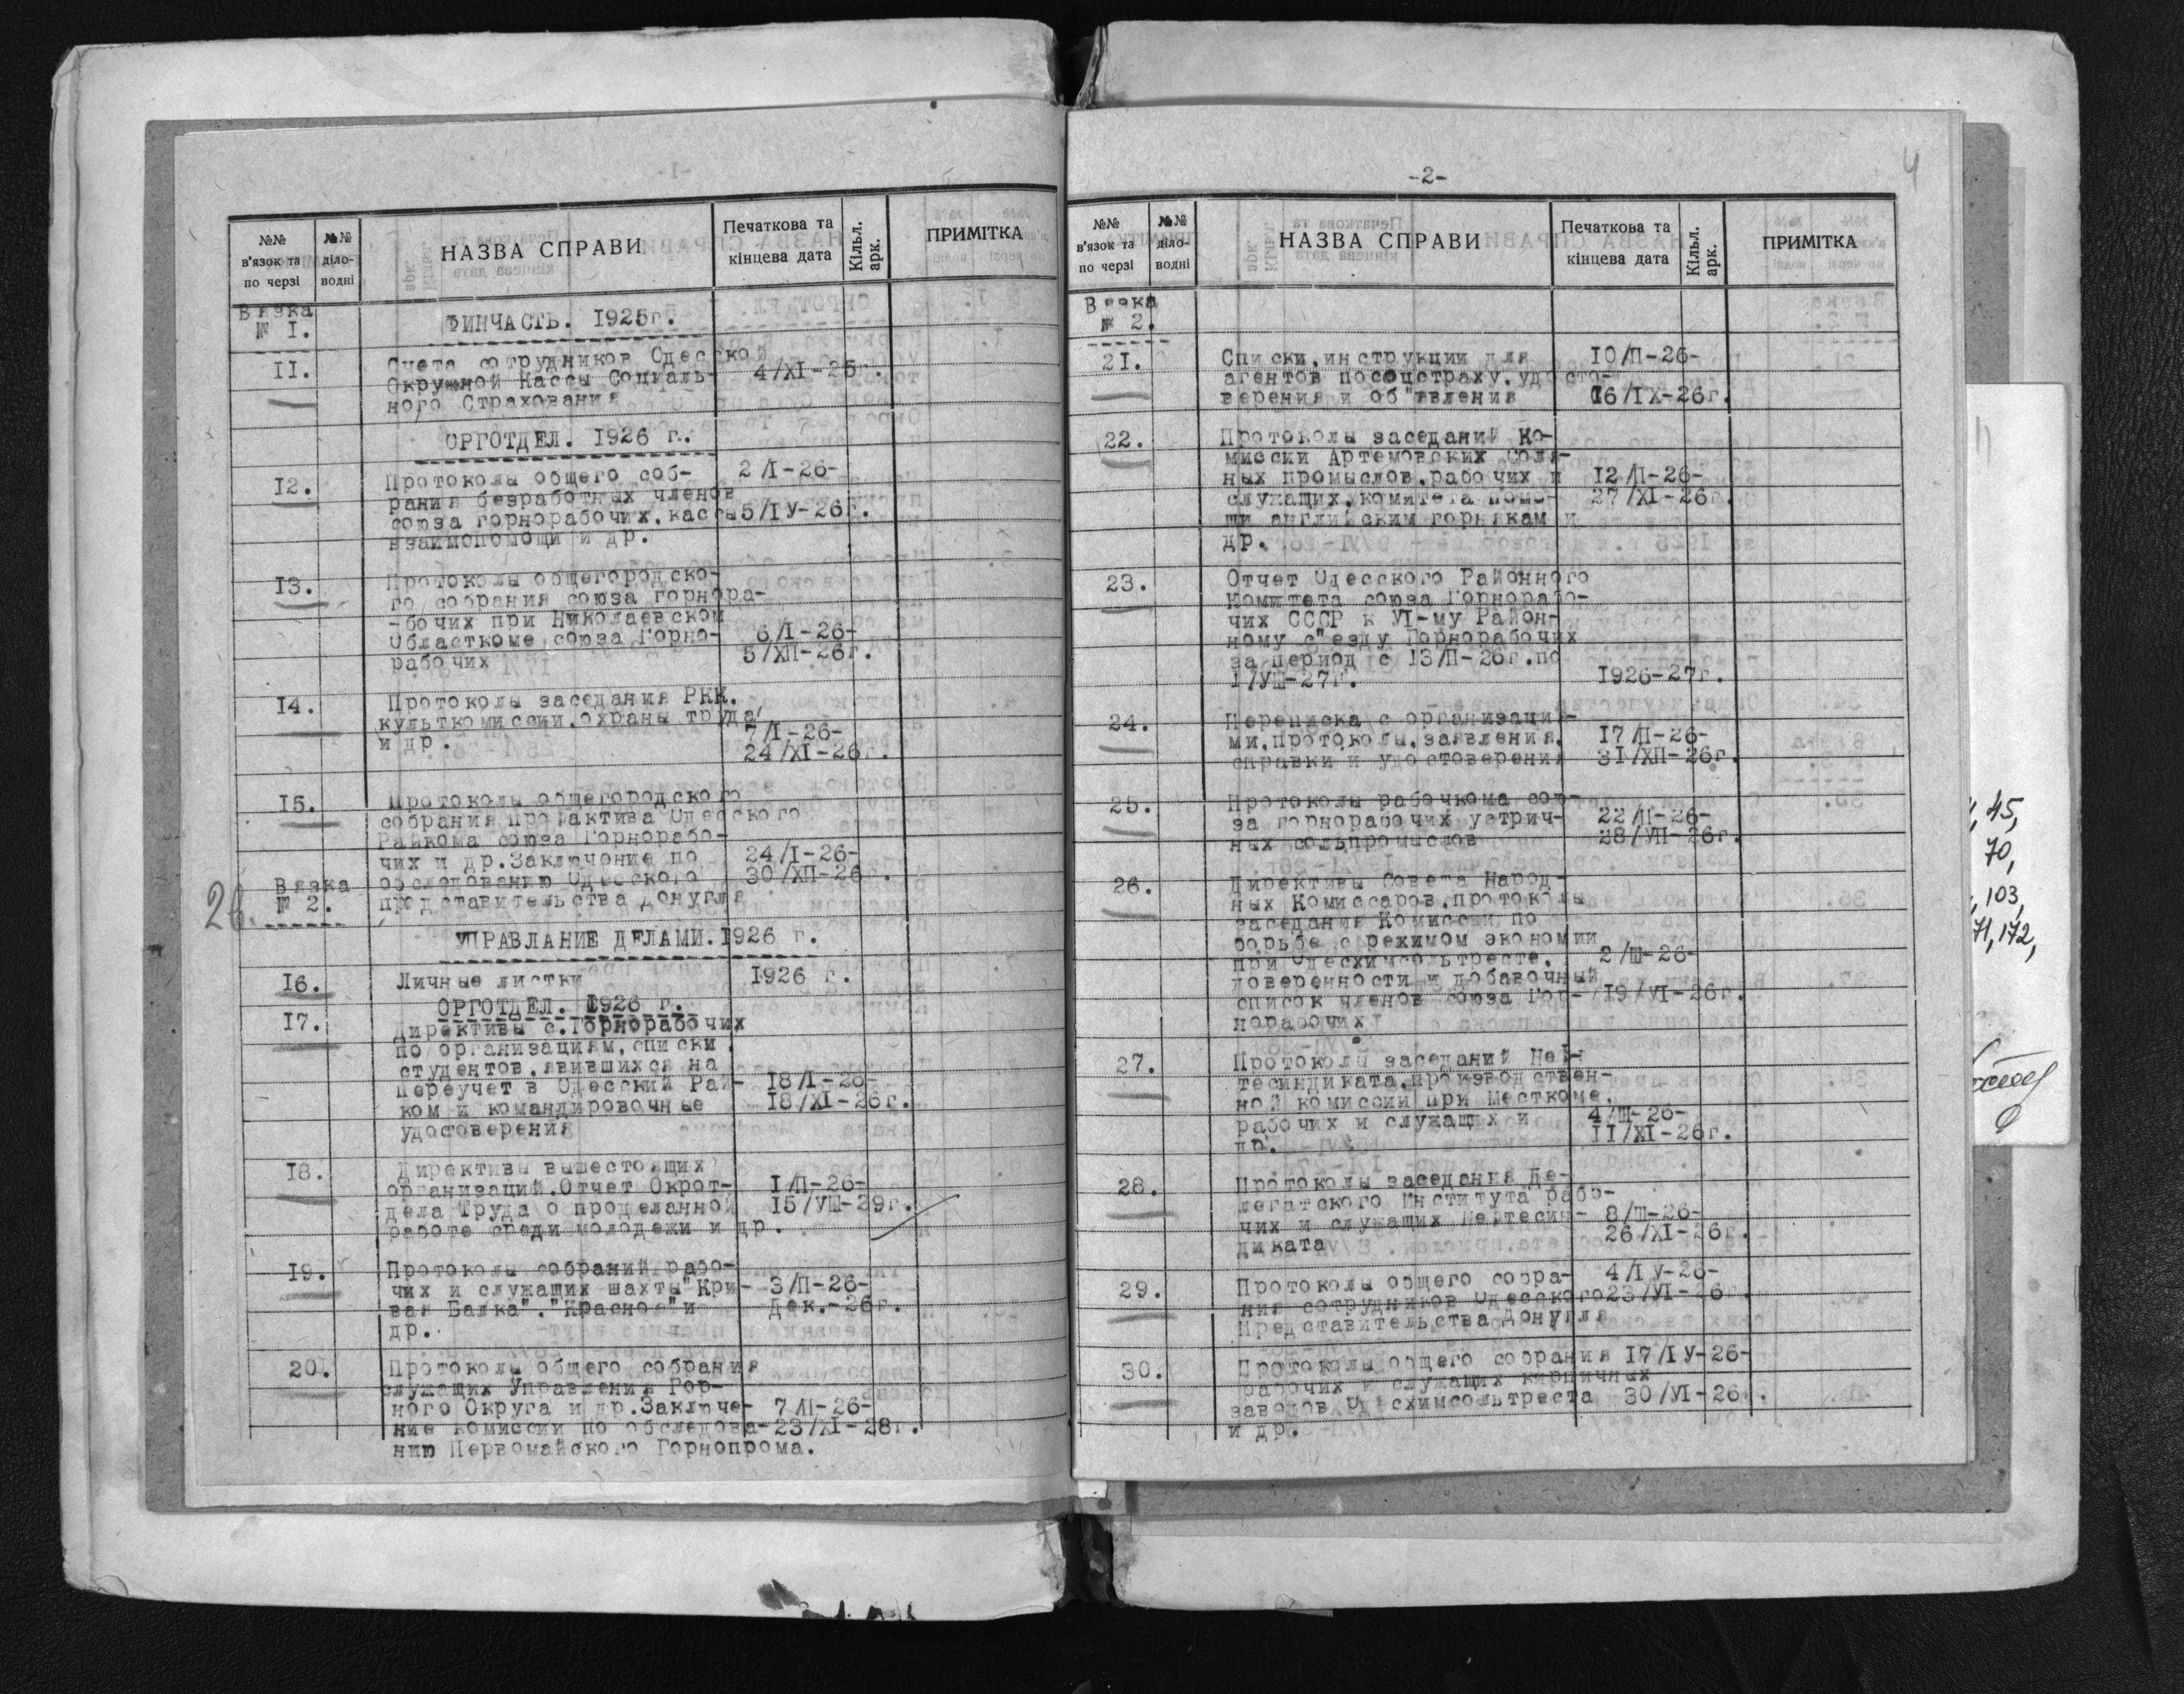 №№
в'язок та
по черзі
№№
діло-
водні
НАЗВА СПРАВИ
Печаткова та
кінцева дата
Кільл.
арк.
ПРИМІТКА
Вязка
№ I.
ФИНЧАСТЬ. I925г.
II.
Счета сотрудников Одесской
Окружной Кассы Социаль- 4/XI-25г.
ного Страхования
ОРГОТДЕЛ. I926 г.
I2.
Протоколы общего соб- 2/I-26-
рания безработных членов
союза горнорабочих,кассы 5/IУ-26г.
взаимопомощи и др.
I3.
Протоколы общегородско-
го собрания союза горнора-
-бочих при Николаевском
Областкоме союза Горно- 6/I-26-
рабочих 5/XП-26г.
I4.
Протоколы заседания РКК,
культкомиссии,охраны труда
и др. 7/I-26-
24/XI-26г.
I5.
Протоколы общегородского
собрания,профактива Одесского
Райкома союза Горнорабо-
чих и др.Заключение по 24/I-26-
обследованию Одесского 30/XП-26г.
представительства Донугля
26.
Вязка
№ 2.
УПРАВЛАНИЕ ДЕЛАМИ.I926 г.
I6.
Личные листки I926 г.
ОРГОТДЕЛ. I926 г.
I7.
Директивы с.Горнорабочих
по организациям,списки
студентов,явившихся на
переучет в Одесский Рай- I8/I-26-
ком и командировочные I8/XI-26г.
удостоверения
I8.
Директивы вышестоящих
организаций.Отчет Окрот- I/П-26-
дела Труда о проделанной I5/УШ-29г.
работе среди молодежи и др.
I9.
Протоколы собраний рабо-
чих и служащих шахты"Кри- 3/П-26-
вая Балка","Красное"и Дек.-26г.
др.
20.
Протоколы общего собрания
служащих Управления Гор-
ного Округа и др.Заключе- 7/П-26-
ние комиссии по обследова- 23/XI-28г.
нию Первомайского Горнопрома.
-2-
4
№№
в'язок та
по черзі
№№
діло-
водні
НАЗВА СПРАВИ
Печаткова та
кінцева дата
Кільл.
арк.
ПРИМІТКА
Вязка
№ 2.
2I.
Списки,инструкции для I0/П-26-
агентов посоцстраху,удосто-
верения и об"явления I6/IX-26г.
22.
Протоколы заседаний Ко-
миссии Артемовских Соля-
ных промыслов,рабочих и I2/П-26-
служащих,комитета помо- 27/XI-26г.
щи английским горнякам и
др.
23.
Отчет Одесского Районного
Комитета союза Горнорабо-
чих СССР к УI-му Район-
ному с"езду Горнорабочих
за период с I3/П-26г.по
I/УШ-27г. I926-27г.
24.
Переписка с организация-
ми,протоколы,заявления, I7/П-26-
справки и удостоверения 3I/XП-26г.
25.
Протоколы рабочкома сою-
за горнорабочих устрич- 22/П-26-
ных сольпромыслов 28/УП-26г.
26.
Директивы Совета Народ-
ных Комиссаров,протоколы
заседания Комиссии по
борьбе с режимом экономии
при Одесхимсольтресте, 2/Ш-26-
доверенности и добавочный
список членов союза Гор- I9/УI-26г.
норабочих
27.
Протоколы заседаний Неф-
тесиндиката,производствен-
ной комиссии при Месткоме,
рабочих и служащих и 4/Ш-26-
др. II/XI-26г.
28.
Протоколы заседания Де-
легатского Института рабо-
чих и служащих Нефтесин- 8/Ш-26-
диката 26/XI-26г.
29.
Протоколы общего собра- 4/IУ-26-
ния сотрудников Одесского 23/УI-26г.
Представительства Донугля
30.
Протоколы общего собрания I7/IУ-26-
рабочих и служащих кирпичных
заводов Одесхимсольтреста 30/УI-26г.
и др.
45,
70,
103,
71, 172,